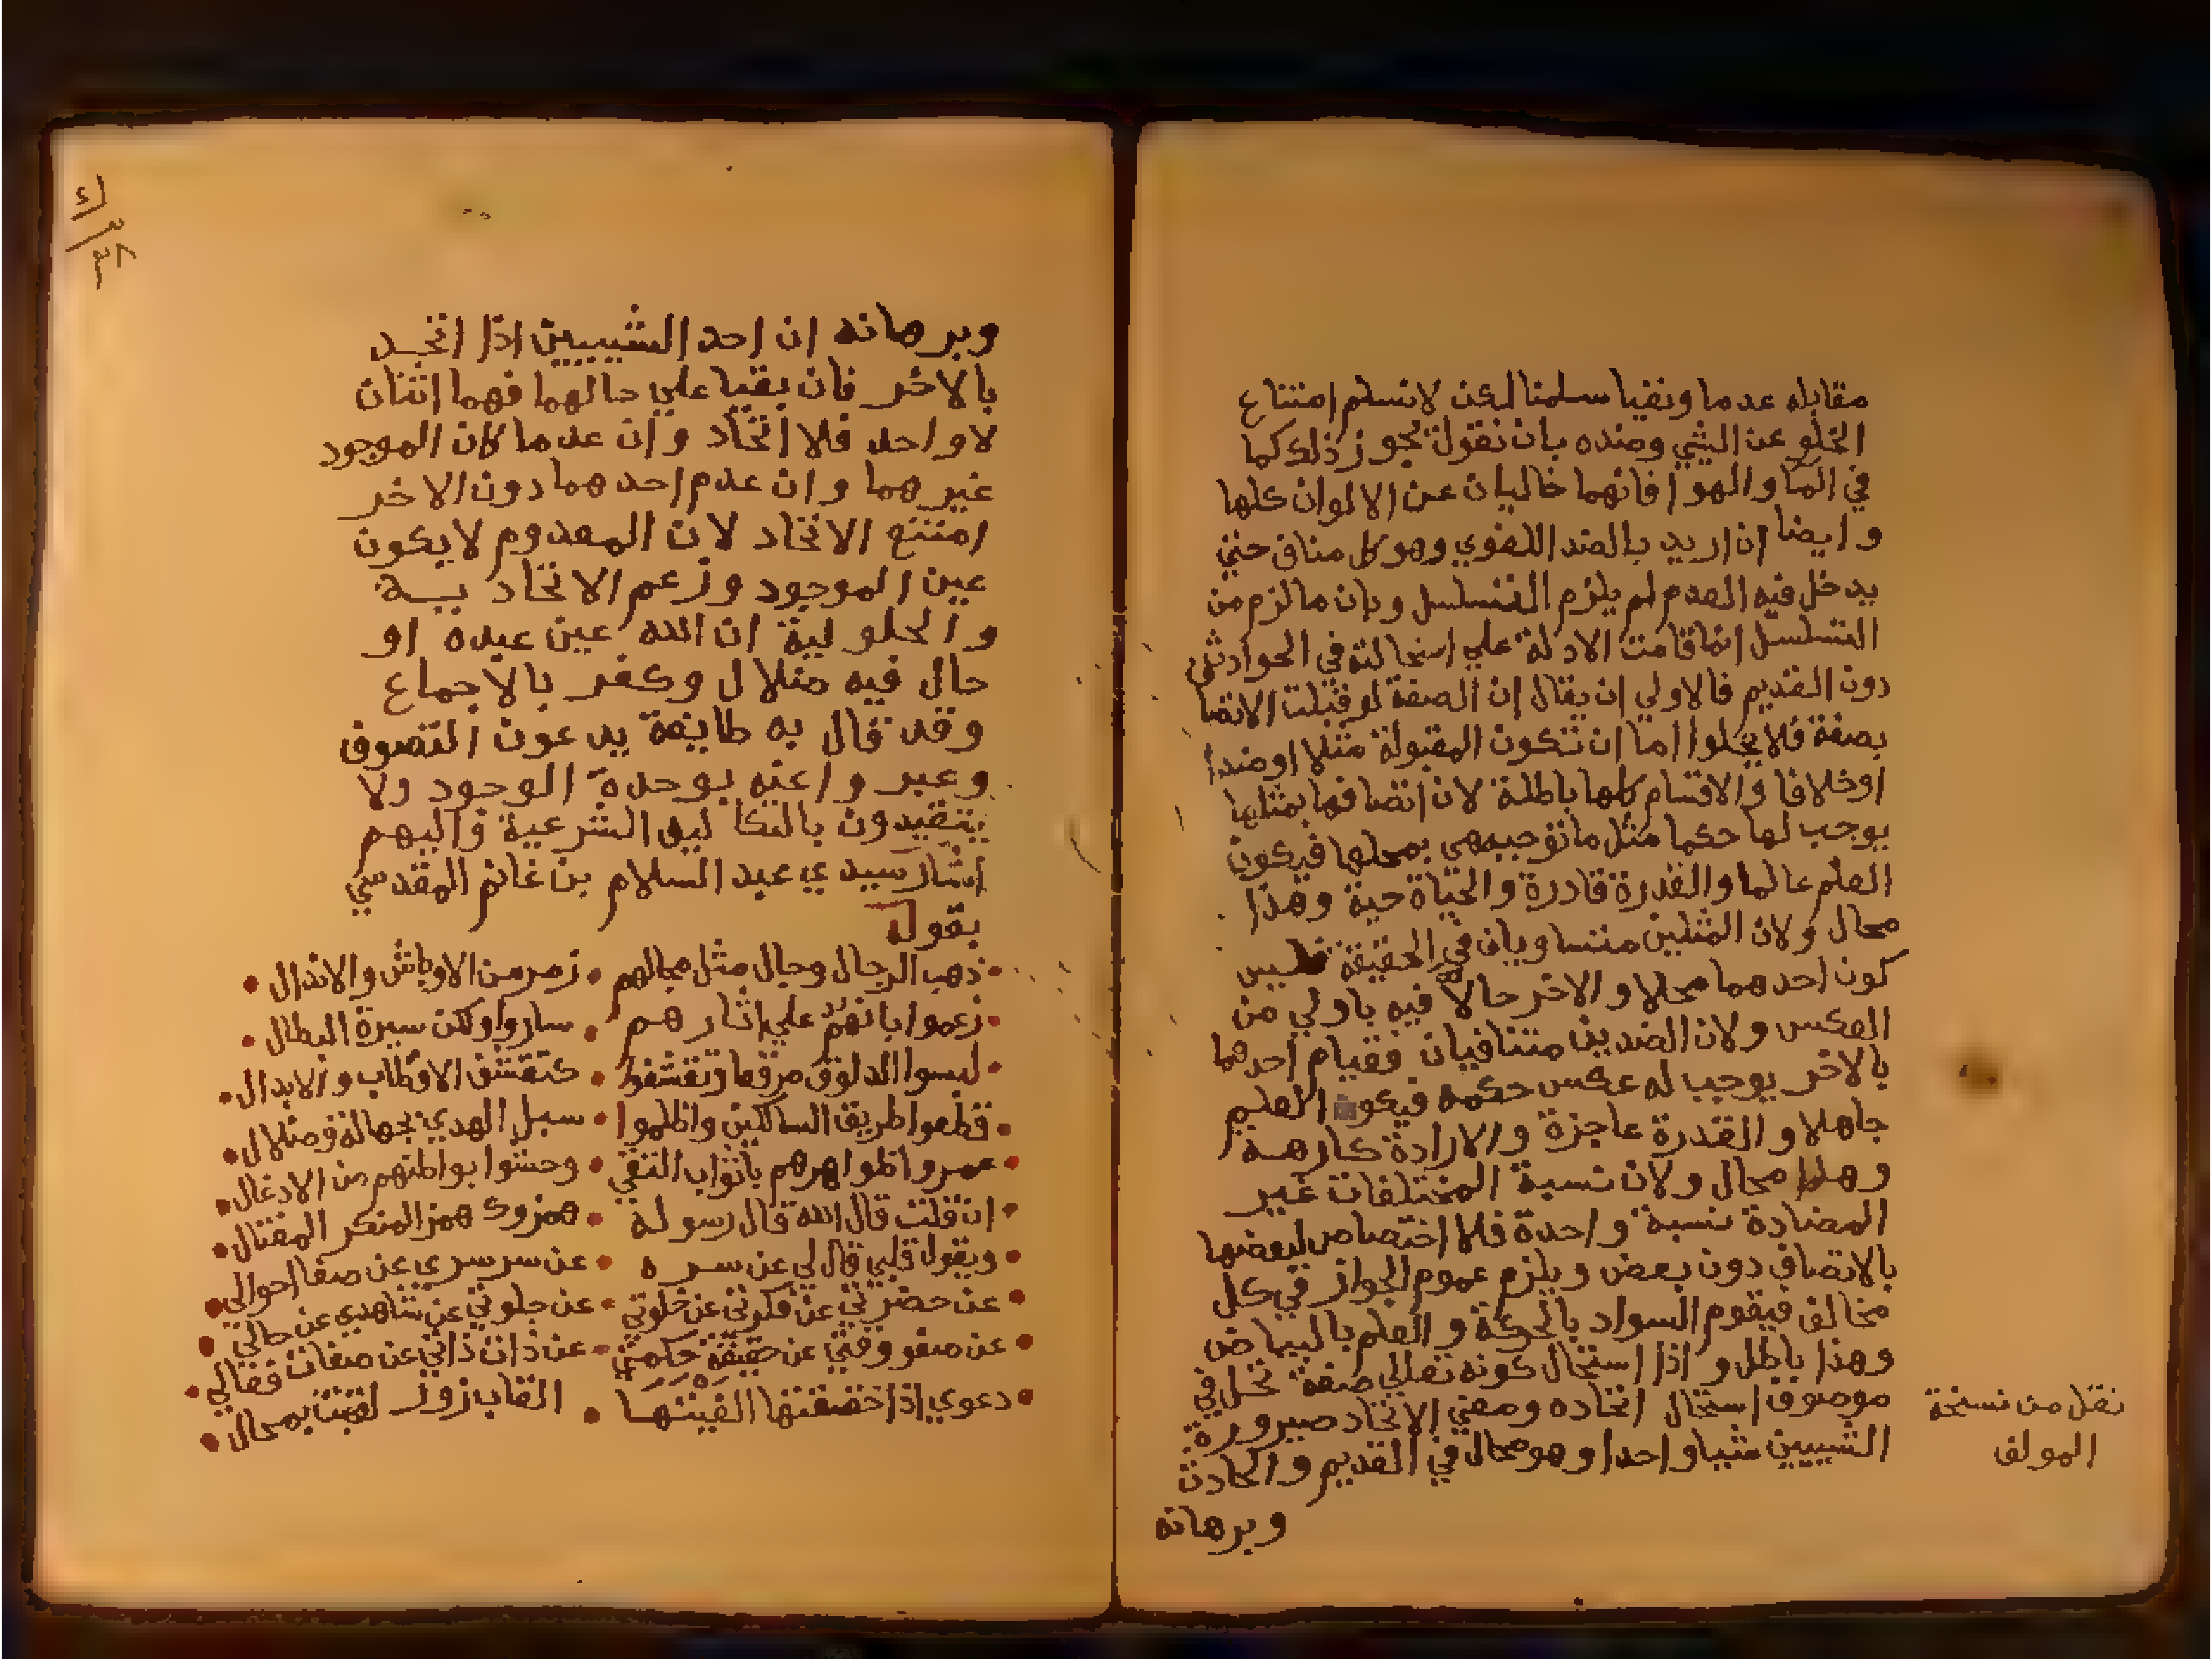 مقابله عدما ونفيا سلمنا لكن لا نسلم امتناع
الخلو عن الشي وضده بان نقول نجوز ذلك كما
في الما والهوا فانهما خاليان عن الالوان كلها
وايضا ان اريد بالضد اللغوي وهو كل مناف حتي
يدخل فيه العدم لم يلزم التسلسل وبان ما لزم من
التسلسل انما قامت الادلة علي استحالته في الحوادث
دون القديم فالاولي ان يقال ان الصفة لو قبلت الاتصا
بصفة فلا يخلوا اما ان تكون المقبولة مثلا او ضدا
او خلافا والاقسام كلها باطلة لان اتصافها بمثلها
يوجب لها حكما مثل ما توجبه هي بمحلها فيكون
العلم عالما والقدرة قادرة والحياة حية وهذا
محال ولان المثلين متساويان في الحقيقة فليس
كون احدهما محلا والاخر حالا فيه باولي من
العكس ولان الضدين متنافيان فقيام احدهما
بالاخر يوجب له عكس حكمه فيكون العلم
جاهلا والقدرة عاجزة والارادة كارهة
وهذا محال ولان نسبة المختلفات غير
المضادة نسبة واحدة فلا اختصاص لبعضها
بالاتصاف دون بعض ويلزم عموم الجواز في كل
مخالف فيقوم السواد بالحركة والعلم بالبياض
وهذا باطل واذا استحال كونه تعالي صفة تحل في
موصوف استحال اتحاده ومعني الاتحاد صيرورة
الشييين شيا واحدا وهو محال في القديم والحادث
وبرهانه
نقل من نسخة
المولف
وبرهانه ان احد الشييين اذا اتحد
بالاخر فان بقيا علي حالهما فهما اثنان
لا واحد فلا اتحاد وان عدما كان الموجود
غيرهما وان عدم احدهما دون الاخر
امتنع الاتحاد لان المعدوم لا يكون
عين الموجود وزعم الاتحاد يـية
والحلولية ان الله عين عبده او
حال فيه ضلال وكفر بالاجماع
وقد قال به طايفة يدعون التصوف
وعبروا عنه بوحدة الوجود ولا
يتقيدون بالتكاليف الشرعية واليهم
اشار سيدي عبد السلام بن غانم المقدسي
بقوله
ذهب الرجال وحال مثل مجالهم • زمر من الاوباش والانذال
زعموا بانهم علي اثارهم • ساروا ولكن سيرة البطال
لبسوا الدلوق مرقعا وتقشفوا • كتقشف الاقطاب والابدال
قطعوا طريق السالكين واظلموا • سبل الهدي بجهالة وضلال
عمروا ظواهرهم باثواب التقي • وحشوا بواطنهم من الادغال
ان قلت قال الله قال رسوله • همزوك همز المنكر المغتال
ويقول قلبي قال لي عن سره • عن سر سري عن صفا احوالي
عن حضرتي عن فكرتي عن خلوتي • عن جلوتي عن شاهدي عن حالي
عن صفو وقتي عن حقيقة حكمتي • عن ذات ذاتي عن صفات فعالي
دعوي اذا حققتها الفيتها • القاب زور لفقت بمحال